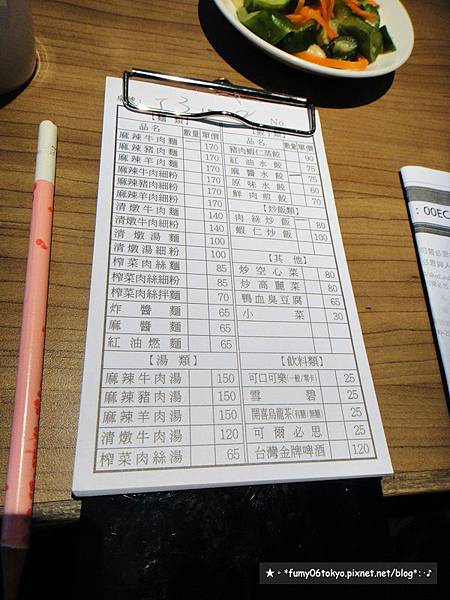 桌號
No.
【麵類】
品名 數量 單價
麻辣牛肉麵 170
麻辣豬肉麵 170
麻辣羊肉麵 170
麻辣牛肉細粉 170
麻辣豬肉細粉 170
麻辣羊肉細粉 170
清燉牛肉麵 140
清燉牛肉細粉 140
清燉湯麵 100
清燉湯細粉 100
榨菜肉絲麵 85
榨菜肉絲細粉 85
榨菜肉絲拌麵 70
炸醬麵 65
麻醬麵 65
紅油燃麵 65
【湯類】
麻辣牛肉湯 150
麻辣豬肉湯 150
麻辣羊肉湯 150
清燉牛肉湯 120
榨菜肉絲湯 65
【餃子類】
品名 數量 單價
豬肉蝦仁蒸餃 90
紅油水餃 75
麻醬水餃 75
原味水餃 60
鮮肉煎餃 70
【炒飯類】
肉絲炒飯 80
蝦仁炒飯 100
【其他】
炒空心菜 80
炒高麗菜 80
鴨血臭豆腐 65
小菜 30
【飲料類】
可口可樂(一般/零卡) 25
雪碧 25
開喜烏龍茶(有糖/無糖) 25
可爾必思 25
台灣金牌啤酒 120
: 00EC
★‧*fumy06tokyo.pixnet.net/blog*:‧♪